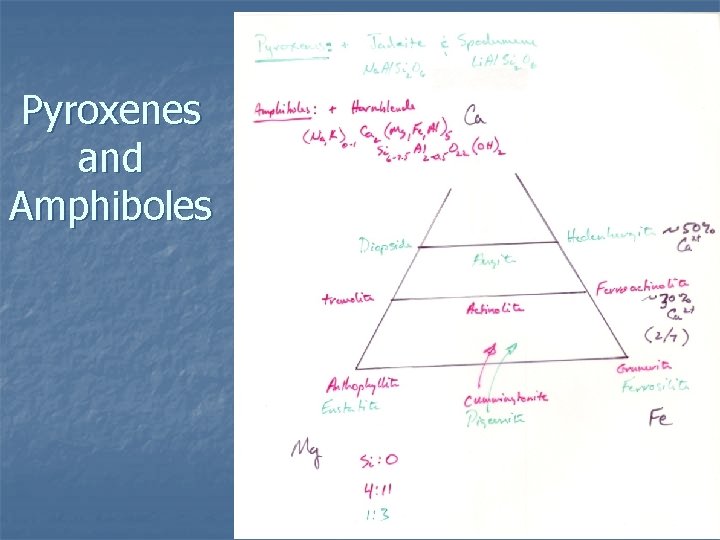 Pyroxenes
and
Amphiboles
Pyroxenes: + Jadeite & Spodumene
NaAlSi2O6 LiAlSi2O6
Amphiboles: + Hornblende
(Na,K)0-1 Ca2 (Mg,Fe,Al)5
Si6-7.5 Al2-0.5 O22 (OH)2
Ca
Diopside Hedenbergite ~50%
Ca2+
Augite
Tremolite Ferroactinolite
Actinolite ~30%
Ca2+
(2/7)
Anthophyllite Cummingtonite Grunerite
Enstatite Pigeonite Ferrosilite
Mg Fe
Si:O
4:11
1:3